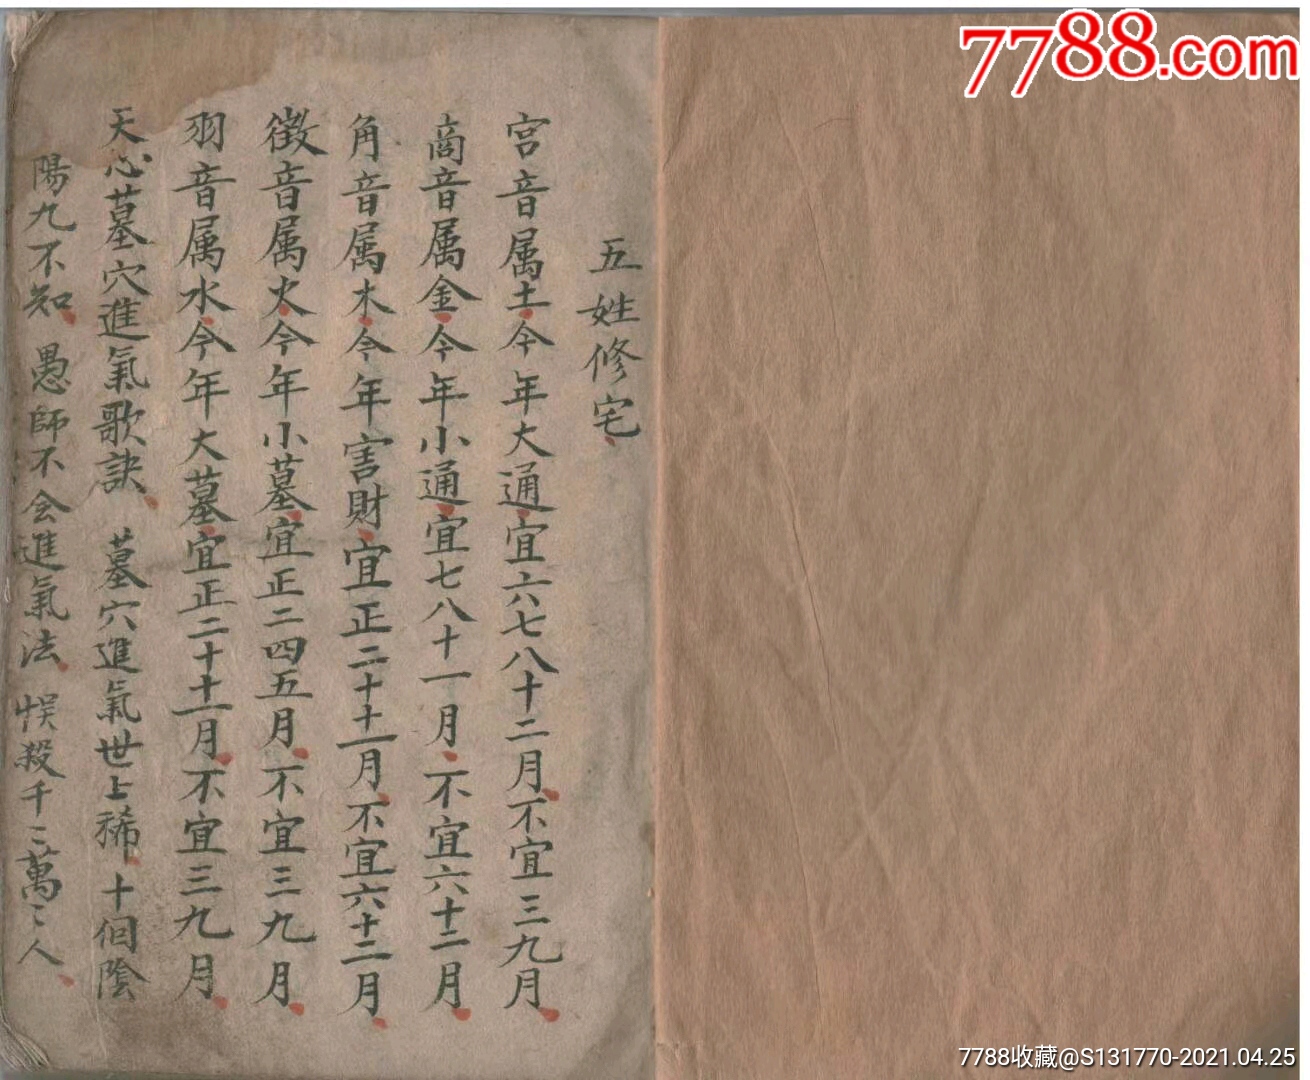 7788.com
五姓修宅
宫音属土今年大通宜六七八十二月不宜三九月
商音属金今年小通宜七八十一月不宜六十二月
角音属木今年害財宜正二十十一月不宜六十二月
徵音属火今年小墓宜正二四五月不宜三九月
羽音属水今年大墓宜正二十十一月不宜三九月
天心墓穴進氣歌訣 墓穴進氣世上稀十個陰
陽九不知 愚師不会進氣法 悮殺千〻萬〻人
7788收藏@S131770-2021.04.25